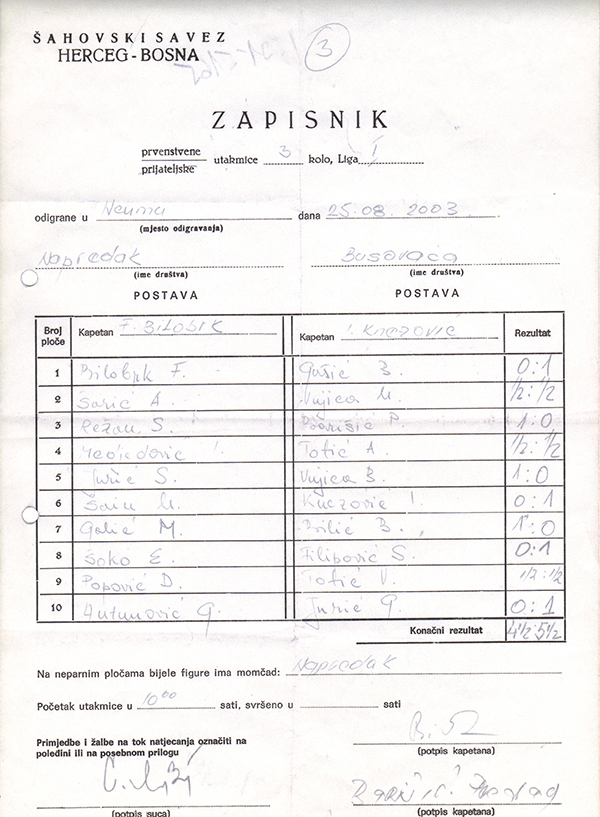 ŠAHOVSKI SAVEZ
HERCEG-BOSNA
3
ZAPISNIK
prvenstvene
prijateljske
utakmice 3 kolo, Liga I
odigrane u Neumu dana 25.08.2003
(mjesto odigravanja)
Napredak Busovača
(ime društva) (ime društva)
POSTAVA POSTAVA
Broj ploče Kapetan F. BILOBRK Kapetan I. Knezović Rezultat
1 Bilobrk F. Gašić B. 0:1
2 Sarić A. Vujica M. 1/2:1/2
3 Režan S. P. 1:0
4 Totić A. 1/2:1/2
5 Jurić S. Vujica B. 1:0
6 Šain M. Knezović I. 0:1
7 Galić M. Brilić B. 1:0
8 Šoko E. Filipović S. 0:1
9 Popović D. Totić V. 1/2:1/2
10 Antunović G. Jurić G. 0:1
Konačni rezultat 4 1/2:5 1/2
Na neparnim pločama bijele figure ima momčad: Napredak
Početak utakmice u 10 00 sati, svršeno u sati
Primjedbe i žalbe na tok natjecanja označiti na
poleđini ili na posebnom prilogu
(potpis kapetana)
(potpis suca) (potpis kapetana)